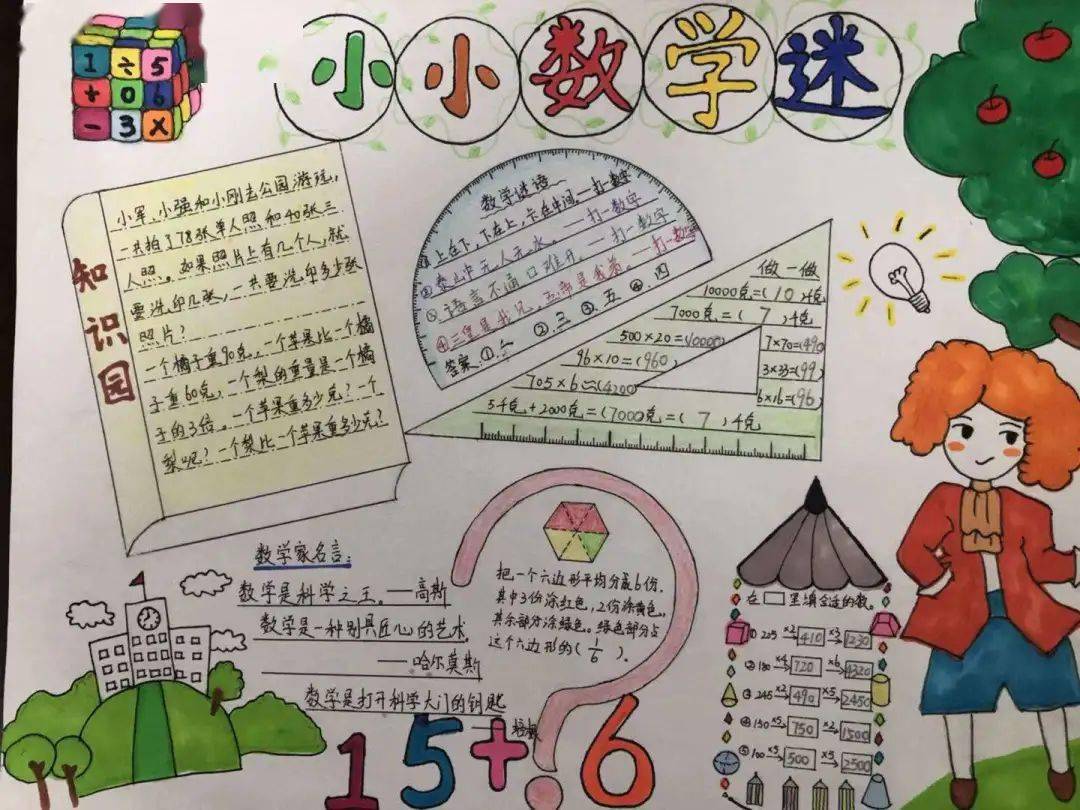 1 ÷ 5
+ 0 6
- 3 ×
小小数学迷
知识园
小军、小强和小刚去公园游玩,
一共拍了78张单人照和40张三
人照。如果照片上有几个人,就
要洗印几张,一共要洗印多少张
照片?
一个橘子重90克,一个苹果比一个橘
子重60克,一个梨的重量是一个橘
子的3倍。一个苹果重多少克?一个
梨呢?一个梨比一个苹果重多少克?
数学谜语
①上在下,下在上,卡在中间。——打一数字
②泰山中无人无水。——打一数字
③语言不通口难开。——打一数字
④三皇是我兄,五帝是我弟。——打一数字
答案:①一 ②三 ③五 ④四
做一做
10000克=(10)千克
7000克=(7)千克
500×20=(10000)
96×10=(960)
705×6≈(4200)
5千克+2000克=(7000克=(7)千克
7×70=(490
3×33=(99)
6×16=(96)
数学家名言:
数学是科学之王。——高斯
数学是一种别具匠心的艺术。
——哈尔莫斯
数学是打开科学大门的钥匙
——培根
把一个六边形平均分成6份,
其中3份涂红色,2份涂黄色,
其余部分涂绿色。绿色部分占
这个六边形的(1/6)。
15+?6
在□里填合适的数。
① 205 ×2→ 410 ×3→ 1230
② 180 ×4→ 720 ×6→ 4320
③ 245 ×2→ 490 ×5→ 2450
④ 150 ×5→ 750 ×2→ 1500
⑤ 100 ×5→ 500 ×5→ 2500